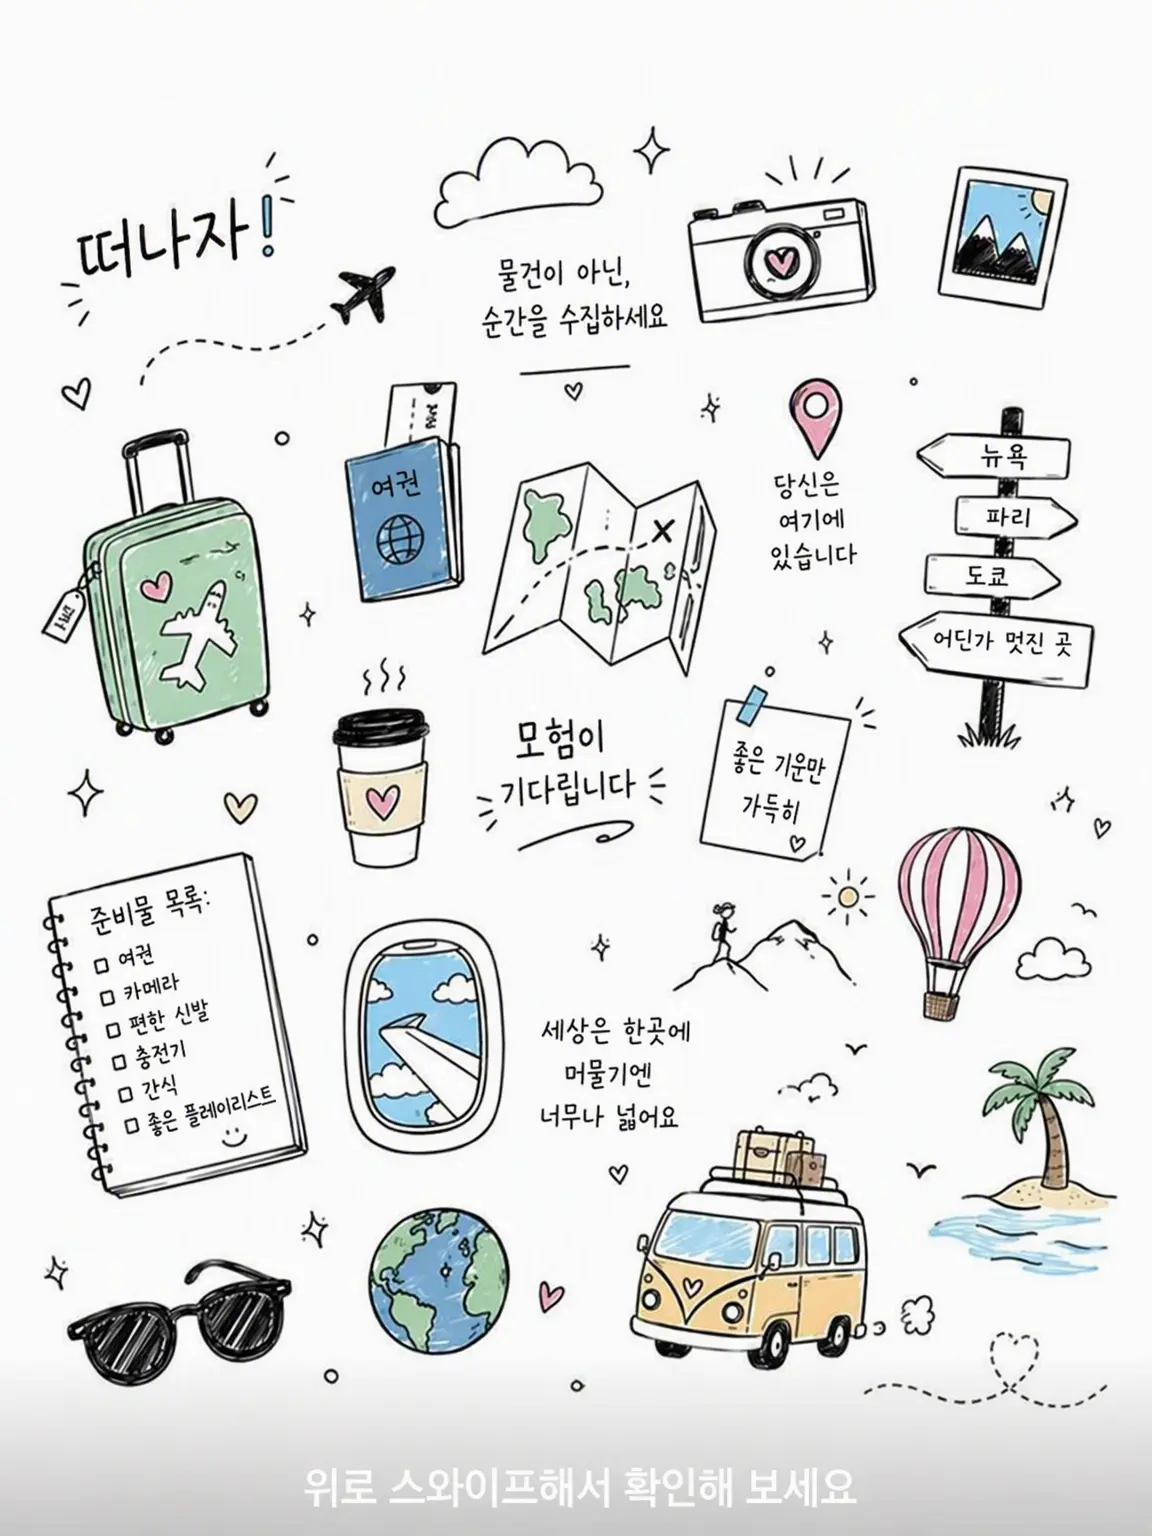 떠나자!
물건이 아닌,
순간을 수집하세요
여권
당신은
여기에
있습니다
뉴욕
파리
도쿄
어딘가 멋진 곳
모험이
기다립니다
좋은 기운만
가득히
준비물 목록:
여권
카메라
편한 신발
충전기
간식
좋은 플레이리스트
세상은 한곳에
머물기엔
너무나 넓어요
위로 스와이프해서 확인해 보세요